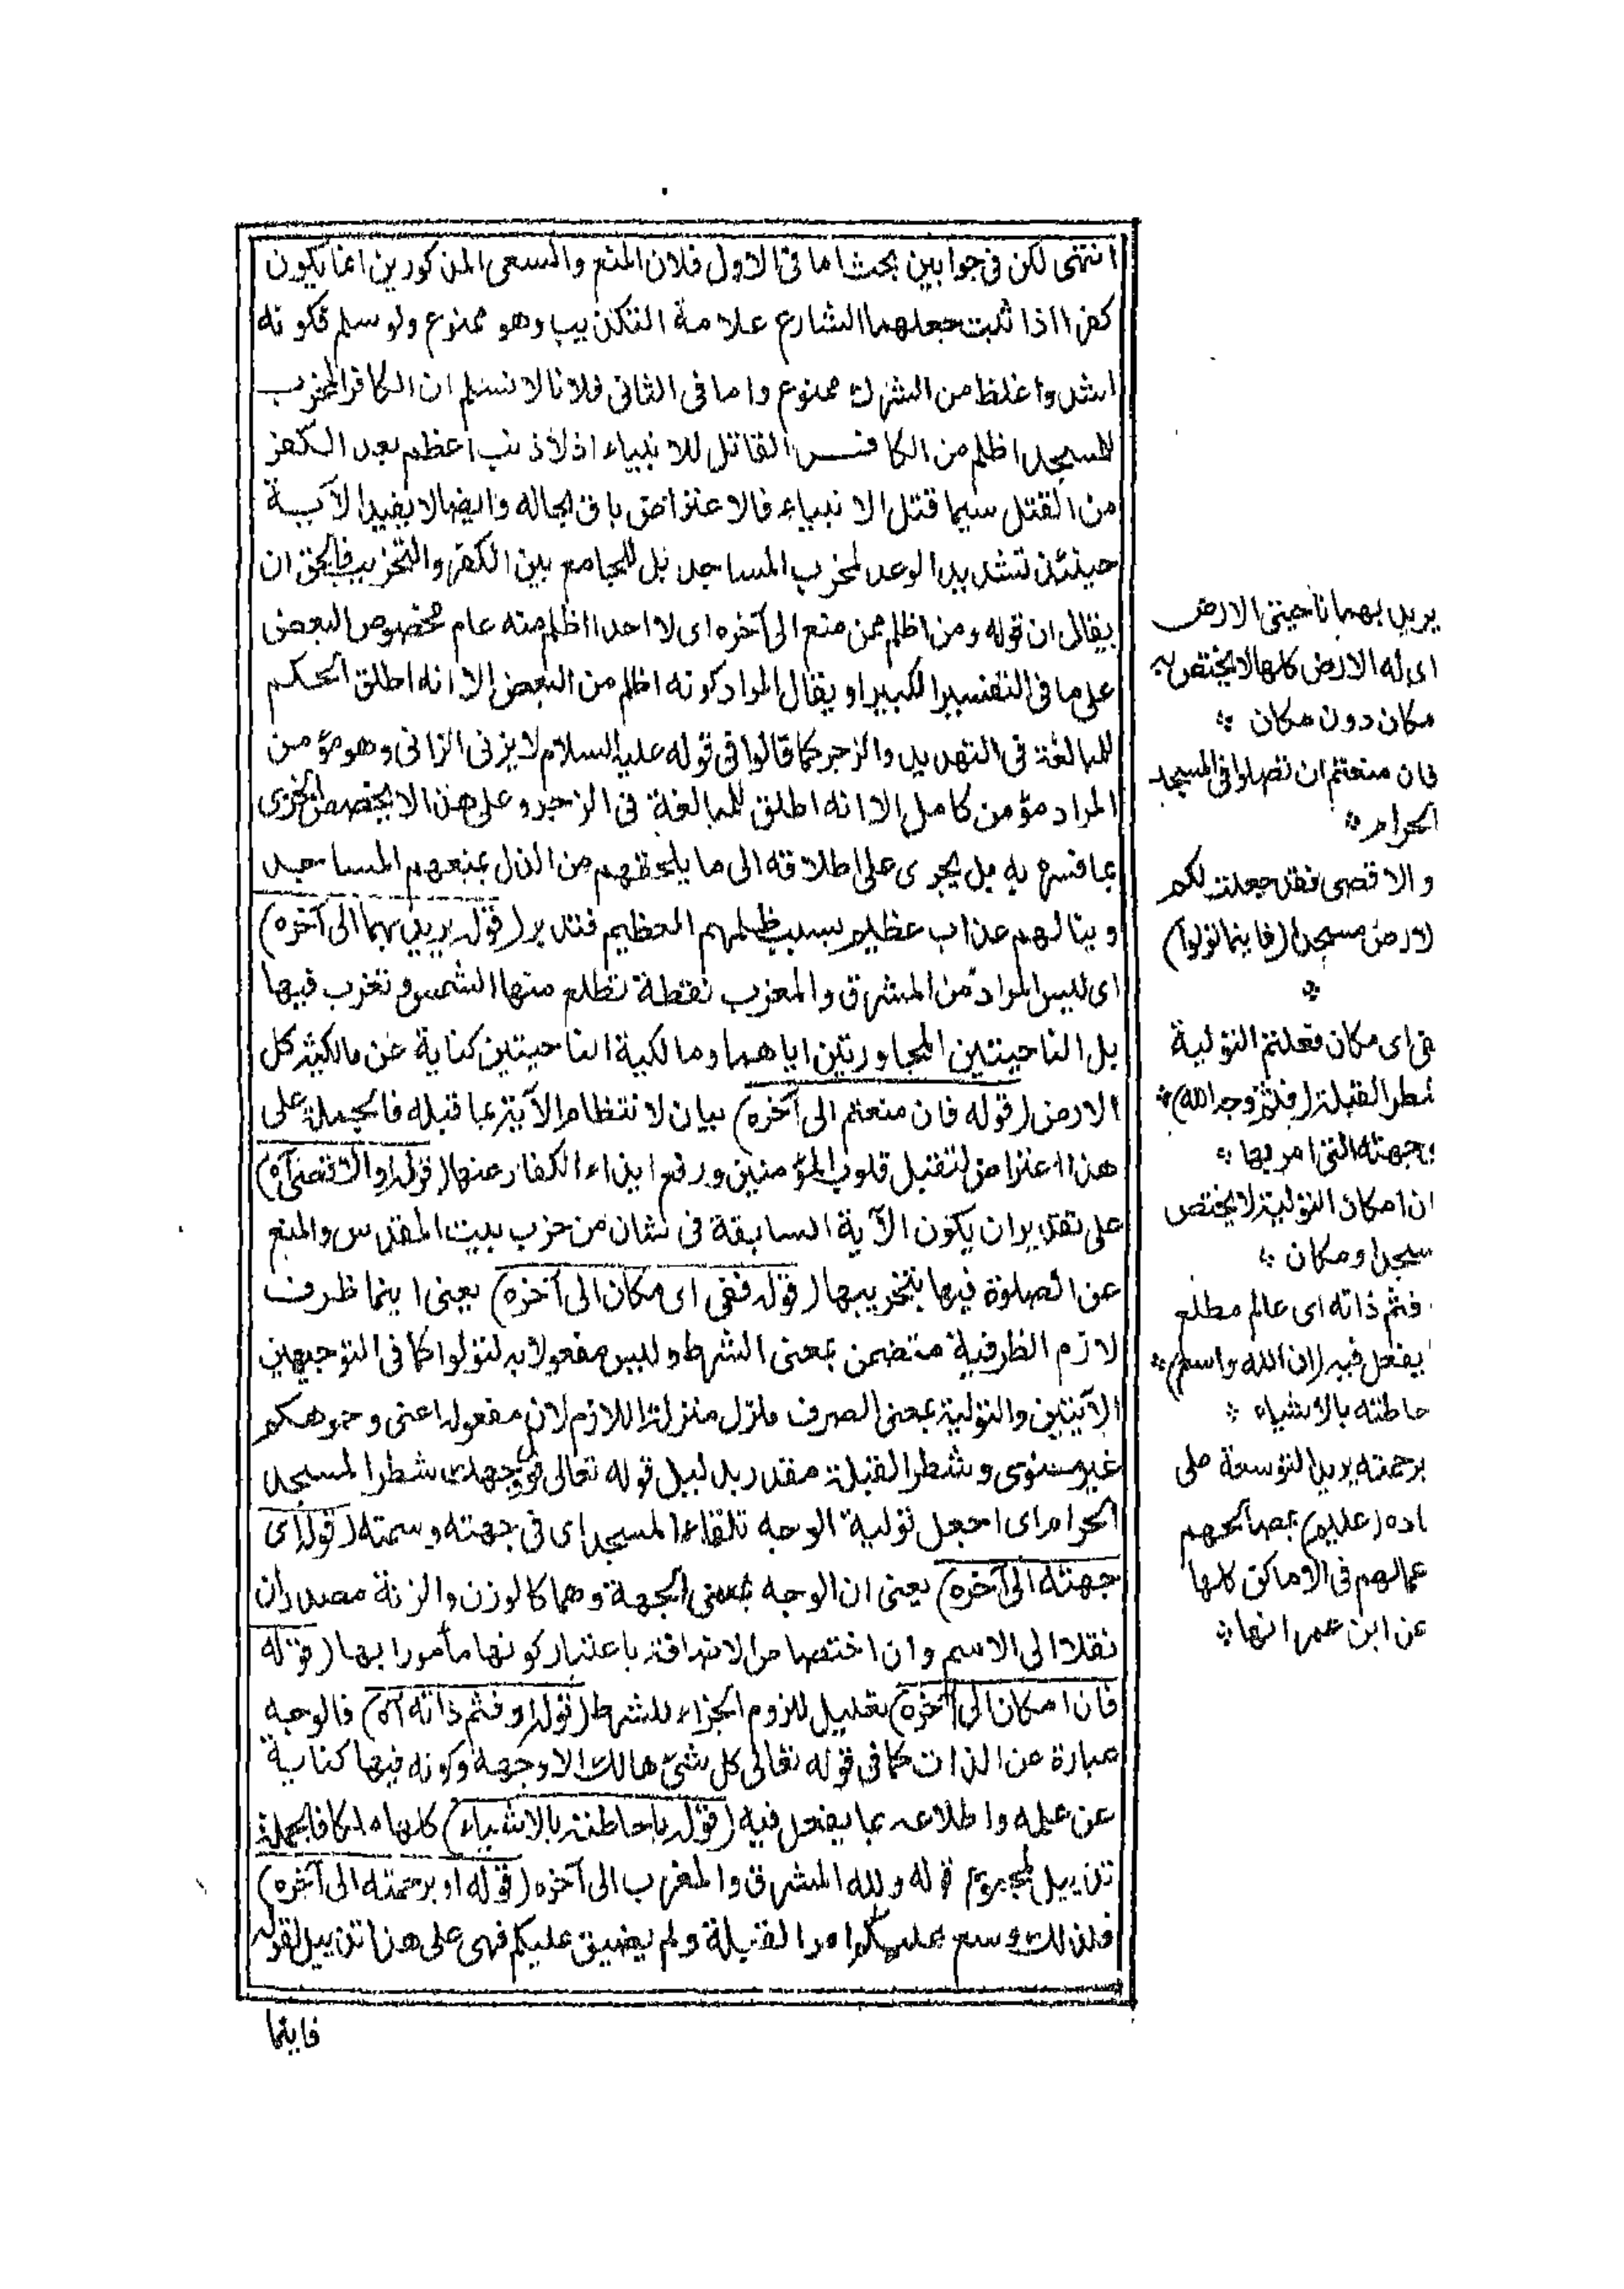 انتهى لكن فى جوابين بحث اما فى الاول فلان المنع والسعى المذكورين انما يكون
كفرا اذا ثبت جعلهما الشارع علامة التكذيب وهو ممنوع ولو سلم فكونه
اشد واغلظ من الشرك ممنوع واما فى الثانى فلانا لا نسلم ان الكافر المخرب
للمسجد اظلم من الكافر القاتل للانبياء اذ لا ذنب اعظم بعد الكفر
من القتل سيما قتل الانبياء فالاعتراض باق بحاله وايضا لا يفيد الآية
حينئذ تشديد الوعد لمخرب المساجد بل للجامع بين الكفر والتخريب فالحق ان
يقال ان قوله ومن اظلم ممن منع الى آخره اى لا احدا اظلم منه عام مخصوص البعض
على ما فى التفسير الكبير او يقال المراد كونه اظلم من البعض الا انه اطلق الحكم
للمبالغة فى التهديد والزجر كما قالوا فى قوله عليه السلام لا يزنى الزانى وهو مؤمن
المراد مؤمن كامل الا انه اطلق للمبالغة فى الزجر وعلى هذا لا يختص الخزى
بما فسره به بل يجرى على اطلاقه الى ما يلحقهم من الذل بمنعهم المساجد
وينالهم عذاب عظيم بسبب ظلمهم العظيم فتدبر (قوله يريد بهما الى آخره)
اى ليس المراد من المشرق والمغرب نقطة تطلع منها الشمس وتغرب فيها
بل الناحيتين المجاورتين اياهما ومالكية الناحيتين كناية عن مالكية كل
الارض (قوله فان منعتم الى آخره) بيان لانتظام الآية بما قبله فالجملة على
هذا اعتراض لتقبل قلوب المؤمنين ورفع ايذاء الكفار عنها (قوله او الاقصى آه)
على تقدير ان يكون الآية السابقة فى شان من خرب بيت المقدس والمنع
عن الصلوة فيها بتخريبها (قوله ففى اى مكان الى آخره) يعنى اينما ظرف
لازم الظرفية متضمن بمعنى الشرط وليس مفعولا به لتولوا كما فى التوجيهين
الآتيين والتولية بمعنى الصرف منزل منزلة اللازم لان مفعوله اعنى وجوهكم
غير منوى وشطر القبلة مقدر بدليل قوله تعالى فول وجهك شطر المسجد
الحرام اى اجعل تولية الوجه تلقاء المسجد اى فى جهته وسمته (قوله اى
جهته الى آخره) يعنى ان الوجه بمعنى الجهة وهما كالوزن والزنة مصدران
نقلا الى الاسم وان اختصاص الاضافة باعتبار كونها مأمورا بها (قوله
فان امكان الى آخره) تعليل للزوم الجزاء للشرط (قوله او فثم ذاته آه) فالوجه
عبارة عن الذات كما فى قوله تعالى كل شئ هالك الا وجهه وكونه فيها كناية
عن علمه واطلاعه بما يفعل فيه (قوله باحاطته بالاشياء) كلها فالجملة
تذييل لمجموع قوله ولله المشرق والمغرب الى آخره (قوله او برحمته الى آخره)
فلذلك وسع عليكم امر القبلة ولم يضيق عليكم فهى على هذا تذييل لقوله
فاينما
يريد بهما ناحيتى الارض
اى له الارض كلها لا يختص به
مكان دون مكان
فان منعتم ان تصلوا فى المسجد
الحرام
و الاقصى فقد جعلت لكم
لارض مسجدا (فاينما تولوا)
فى اى مكان فعلتم التولية
شطر القبلة (فثم وجه الله)
جهته التى امر بها
ان امكان التولية لا يختص
سجد او مكان
فثم ذاته اى عالم مطلع
يفعل فيه (ان الله واسع)
حاطته بالاشياء
برحمته يريد التوسعة على
اده (عليم) بمصالحهم
عمالهم فى الاماكن كلها
عن ابن عمر انها